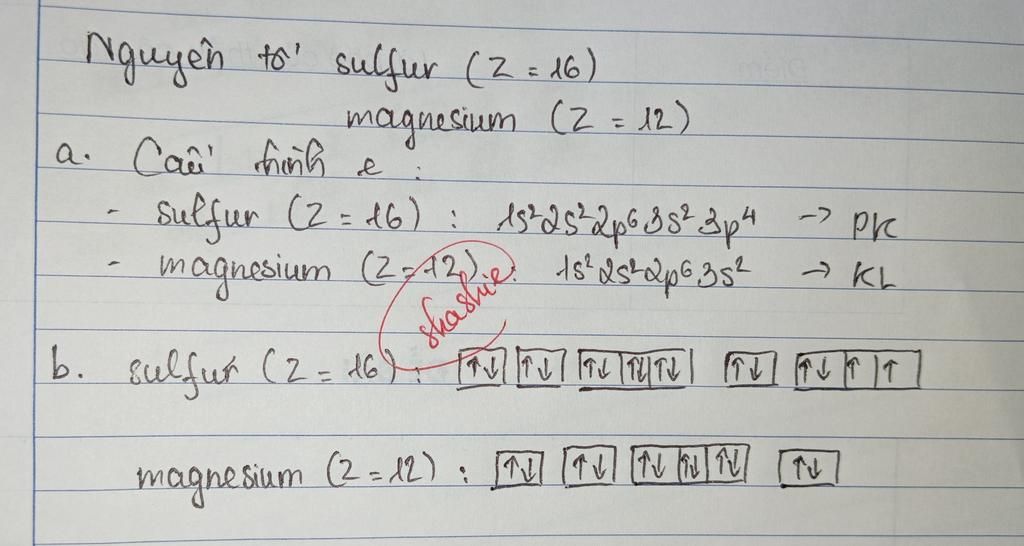 Nguyên tố sulfur (Z = 16)
magnesium (Z = 12)
a. Cấu hình e :
- sulfur (Z = 16) : 1s²2s²2p⁶3s²3p⁴ → PK
- magnesium (Z = 12) : 1s²2s²2p⁶3s² → KL
shashie
b. sulfur (Z = 16) : ↑↓ ↑↓ ↑↓ ↑↓ ↑↓ ↑↓ ↑↓ ↑ ↑
magnesium (Z = 12) : ↑↓ ↑↓ ↑↓ ↑↓ ↑↓ ↑↓